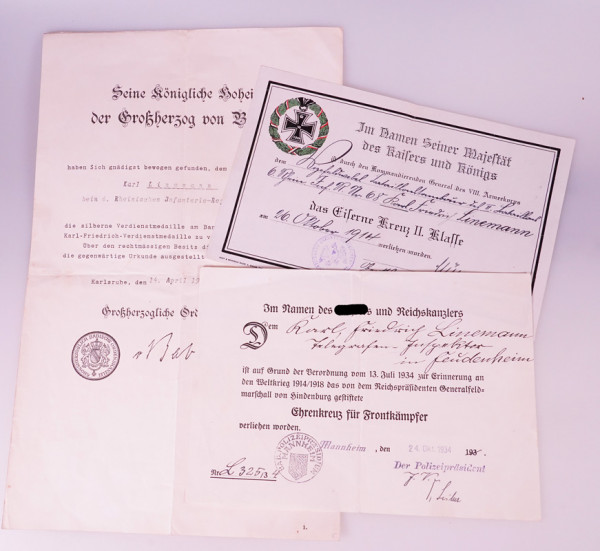 Seine Königliche Hohei
der Großherzog von B
haben Sich gnädigst bewogen gefunden, dem
Karl Linemann
beim 6. Rheinischen Infanterie-Reg
die silberne Verdienstmedaille am Ban
Karl-Friedrich-Verdienstmedaille zu v
Über den rechtmässigen Besitz di
die gegenwärtige Urkunde ausgestellt
Karlsruhe, den 19. April 19
Großherzogliche Ord
1.
Im Namen Seiner Majestät
des Kaisers und Königs
durch den Kommandierenden General des VIII. Armeekorps
dem
Linemann
das Eiserne Kreuz II. Klasse
am 26. Oktober 1914 verliehen worden.
Im Namen des und Reichskanzlers
Dem Karl, Friedrich Linemann
Telegraphen-Inspektor
in Feudenheim
ist auf Grund der Verordnung vom 13. Juli 1934 zur Erinnerung an
den Weltkrieg 1914/1918 das von dem Reichspräsidenten Generalfeld-
marschall von Hindenburg gestiftete
Ehrenkreuz für Frontkämpfer
verliehen worden.
Mannheim, den 24. Okt. 1934 193
Der Polizeipräsident
BAD. POLIZEIPRÄSIDIUM MANNHEIM
Nr. L 3251/34